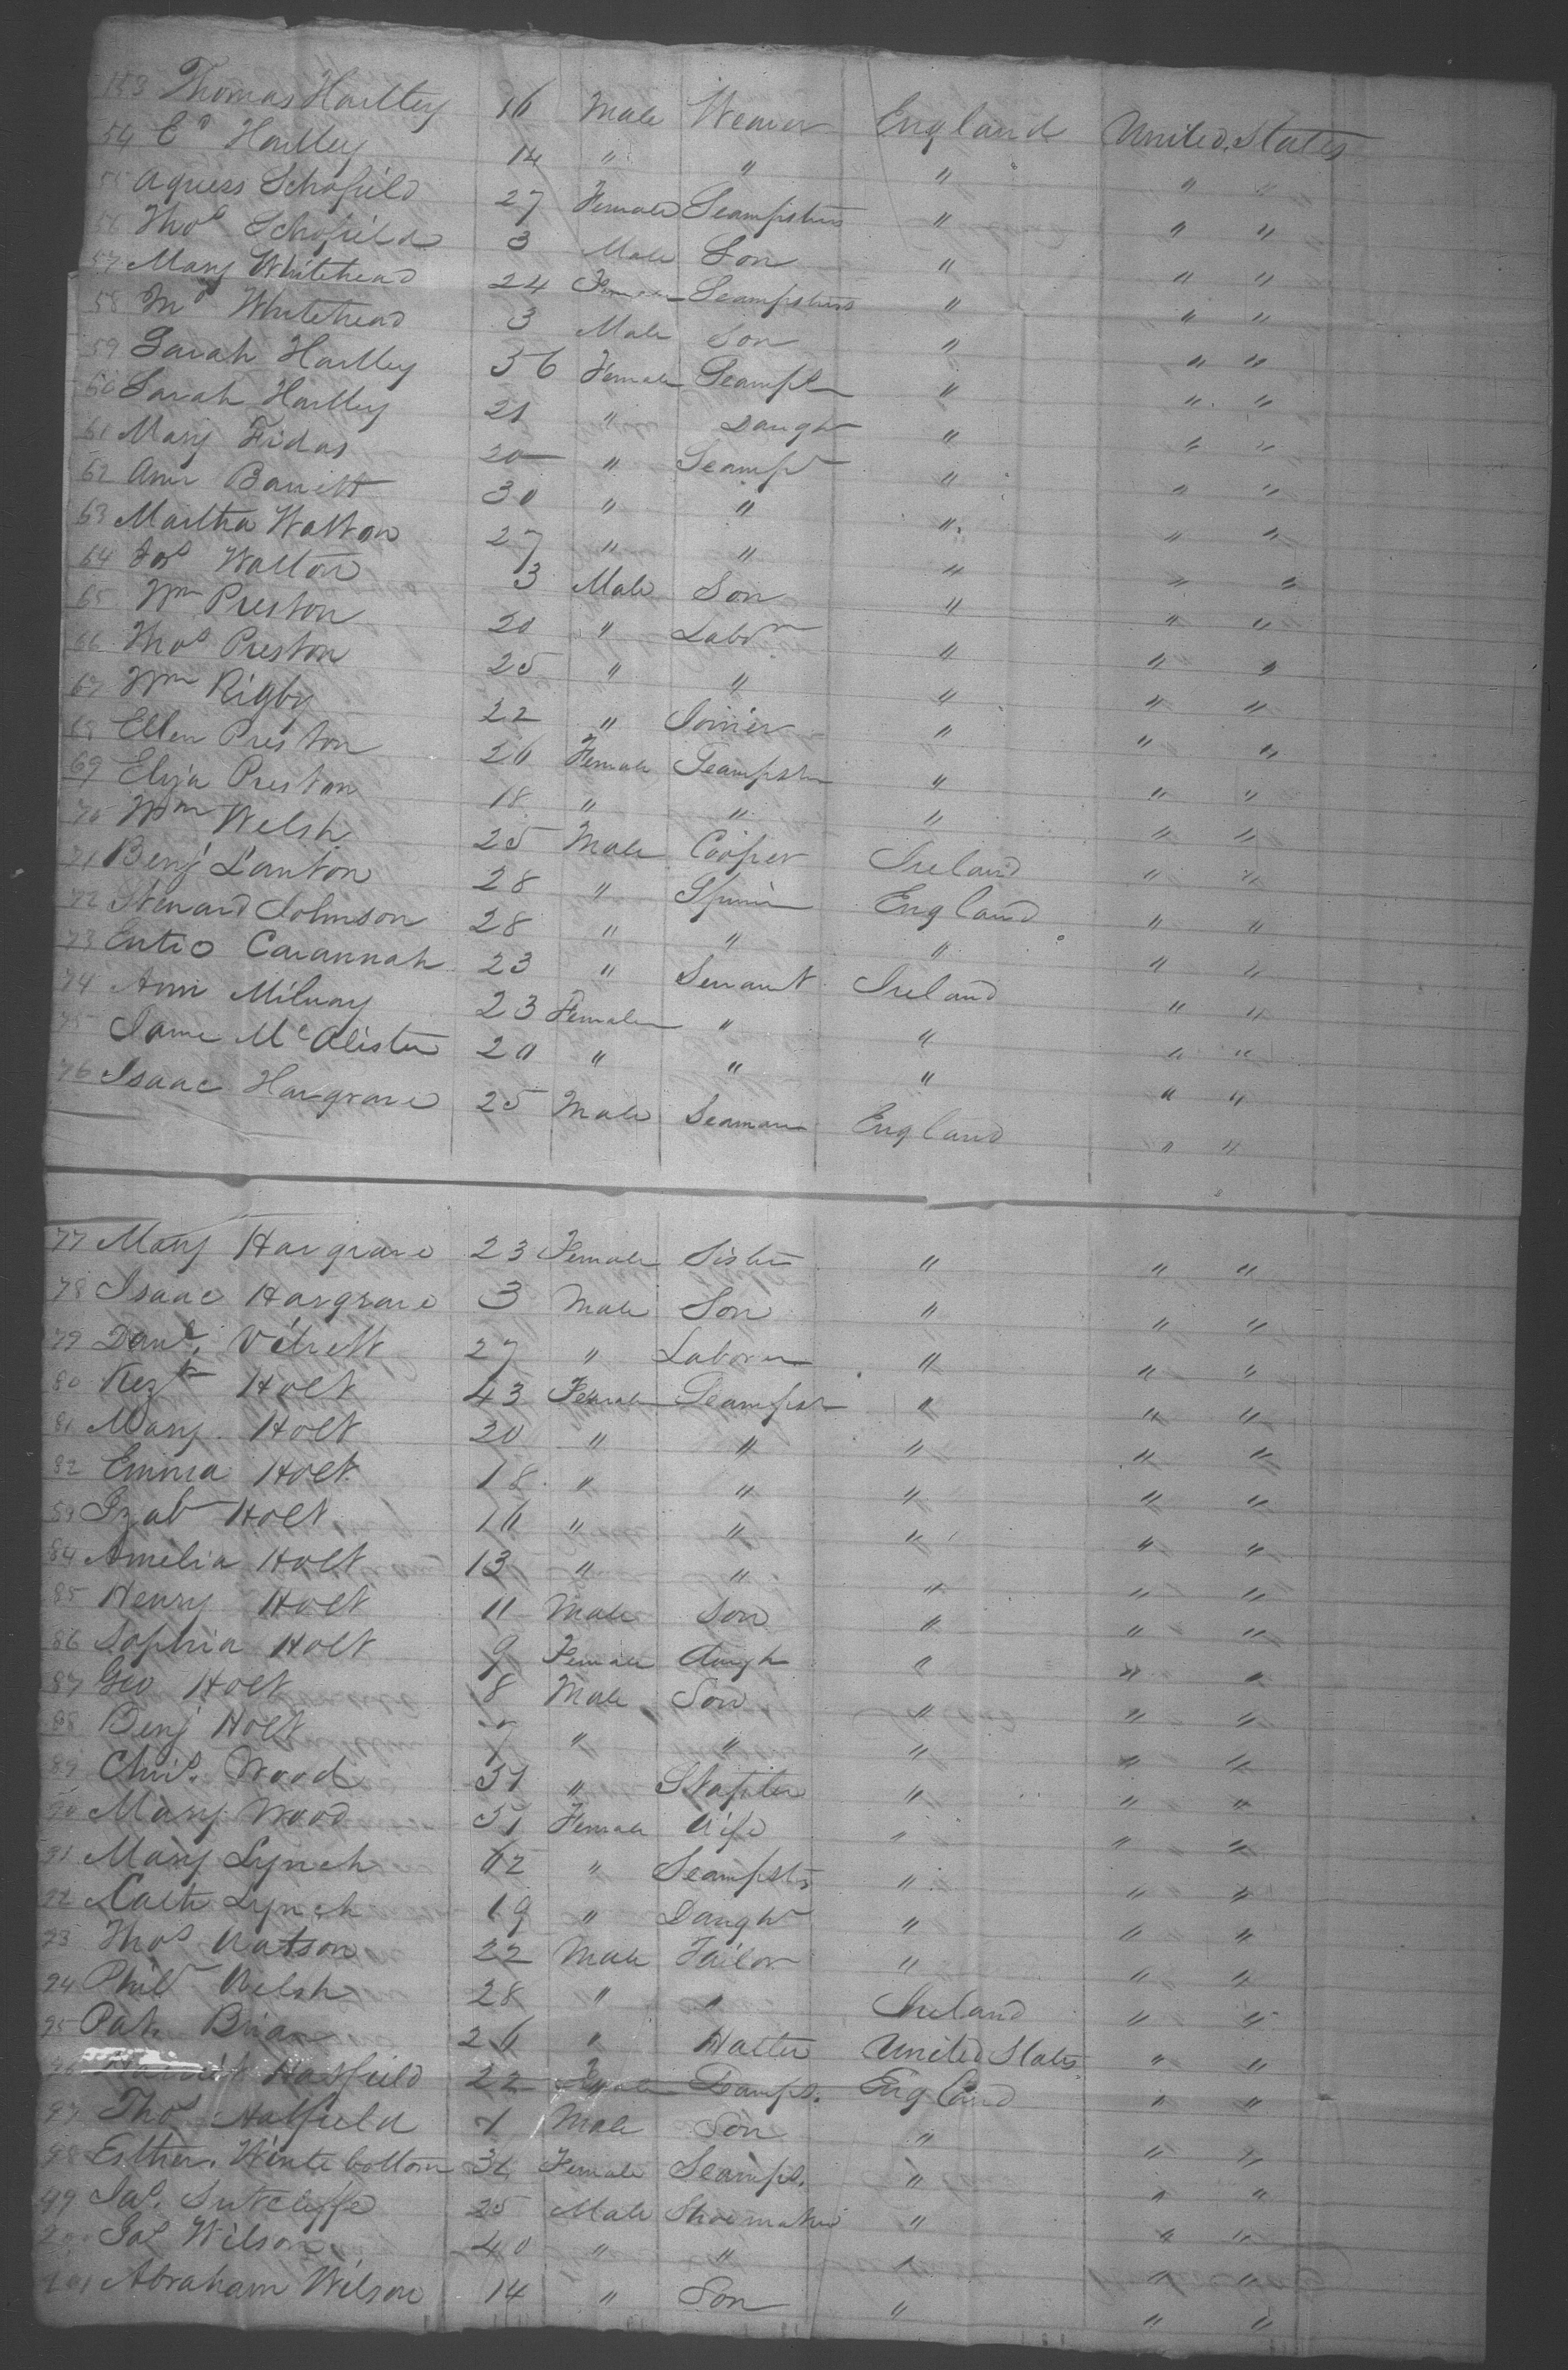 153 Thomas Hartley 16 Male Weaver England United States
54 Ed Hartley 14 " " " " "
55 Agness Schofield 27 Female Seampstress " " "
56 Thos Schofield 3 Male Son " " "
57 Mary Whitehead 24 Female Seampstress " " "
58 Whitehead 3 Male Son " " "
59 Sarah Hartley 56 Female Seampst " " "
60 Sarah Hartley 21 " Daughr " " "
61 Mary 20 " Seampr " " "
62 Ann Barrett 30 " " " " "
63 Martha Walton 27 " " " " "
64 Jos Walton 3 Male Son " " "
65 Wm Preston 20 " Labor " " "
66 Thos Preston 25 " " " " "
67 Wm Rigby 22 " Joiner " " "
68 Ellen Preston 26 Female Seampstr " " "
69 Eliza Preston 18 " " " " "
70 Wm Welsh 25 Male Cooper Ireland " "
71 Benj 28 " England " "
72 Johnson 28 " " " " "
73 Cavannah 23 " Servant Ireland " "
74 Ann 23 Female " " " "
75 Jame McAlister 20 " " " " "
76 Isaac Hargrave 25 Male Seaman England " "
77 Mary Hargrave 23 Female Sister " " "
78 Isaac Hargrave 3 Male Son " " "
79 Danl. 27 " Laborer " " "
80 Holt 43 Female Seampstr " " "
81 Mary Holt 20 " " " " "
82 Emma Holt 18 " " " " "
83 Izab Holt 16 " " " " "
84 Amelia Holt 13 " " " " "
85 Henry Holt 11 Male Son " " "
86 Sophia Holt 9 Female daugh " " "
87 Geo Holt 8 Male Son " " "
88 Benj Holt 7 " " " " "
89 Chrs. Wood 51 " Stapler " " "
90 Mary Wood 51 Female Wife " " "
91 Mary Lynch 62 " Seampsts " " "
92 Cath Lynch 19 " Daughr " " "
93 Thos Watson 22 Male Tailor " " "
94 Philp Welsh 28 " " Ireland " "
95 Pat. Brian 26 " Hatter United States " "
96 Hatfield 22 Female Seampst. England " "
97 Thos Hatfield 1 Male Son " " "
98 Esther Winterbottom 36 Female Seampt. " " "
99 Jas. Sutcliffe 25 Male Shoemaker " " "
200 Jas Wilson 40 " " " " "
201 Abraham Wilson 14 " Son " " "